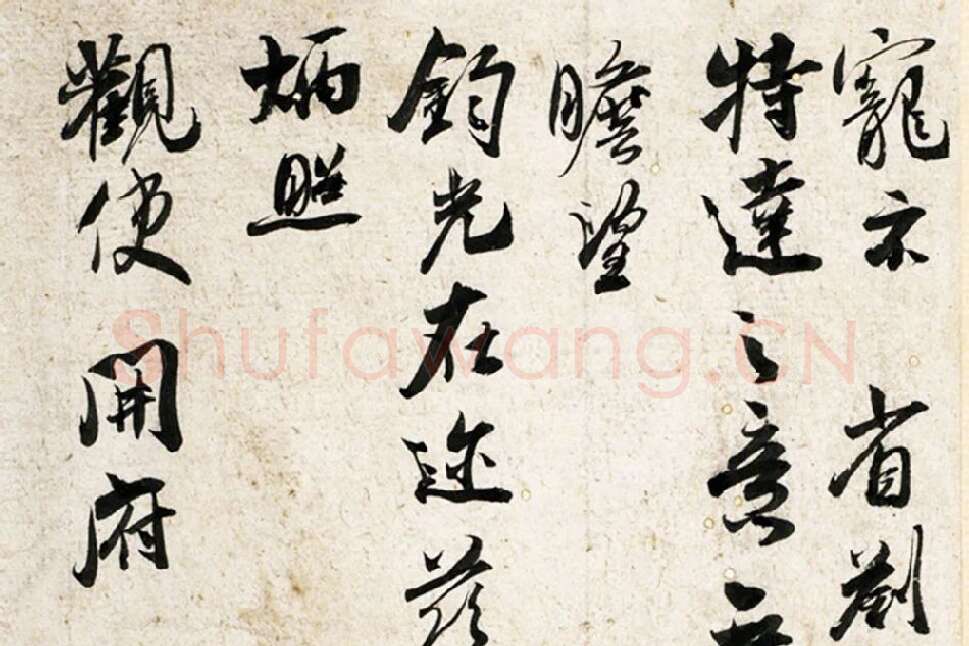 寵示 省劄
特達之意
瞻望
鈞光在迩
炳照
觀使 開府
Shufawang.CN